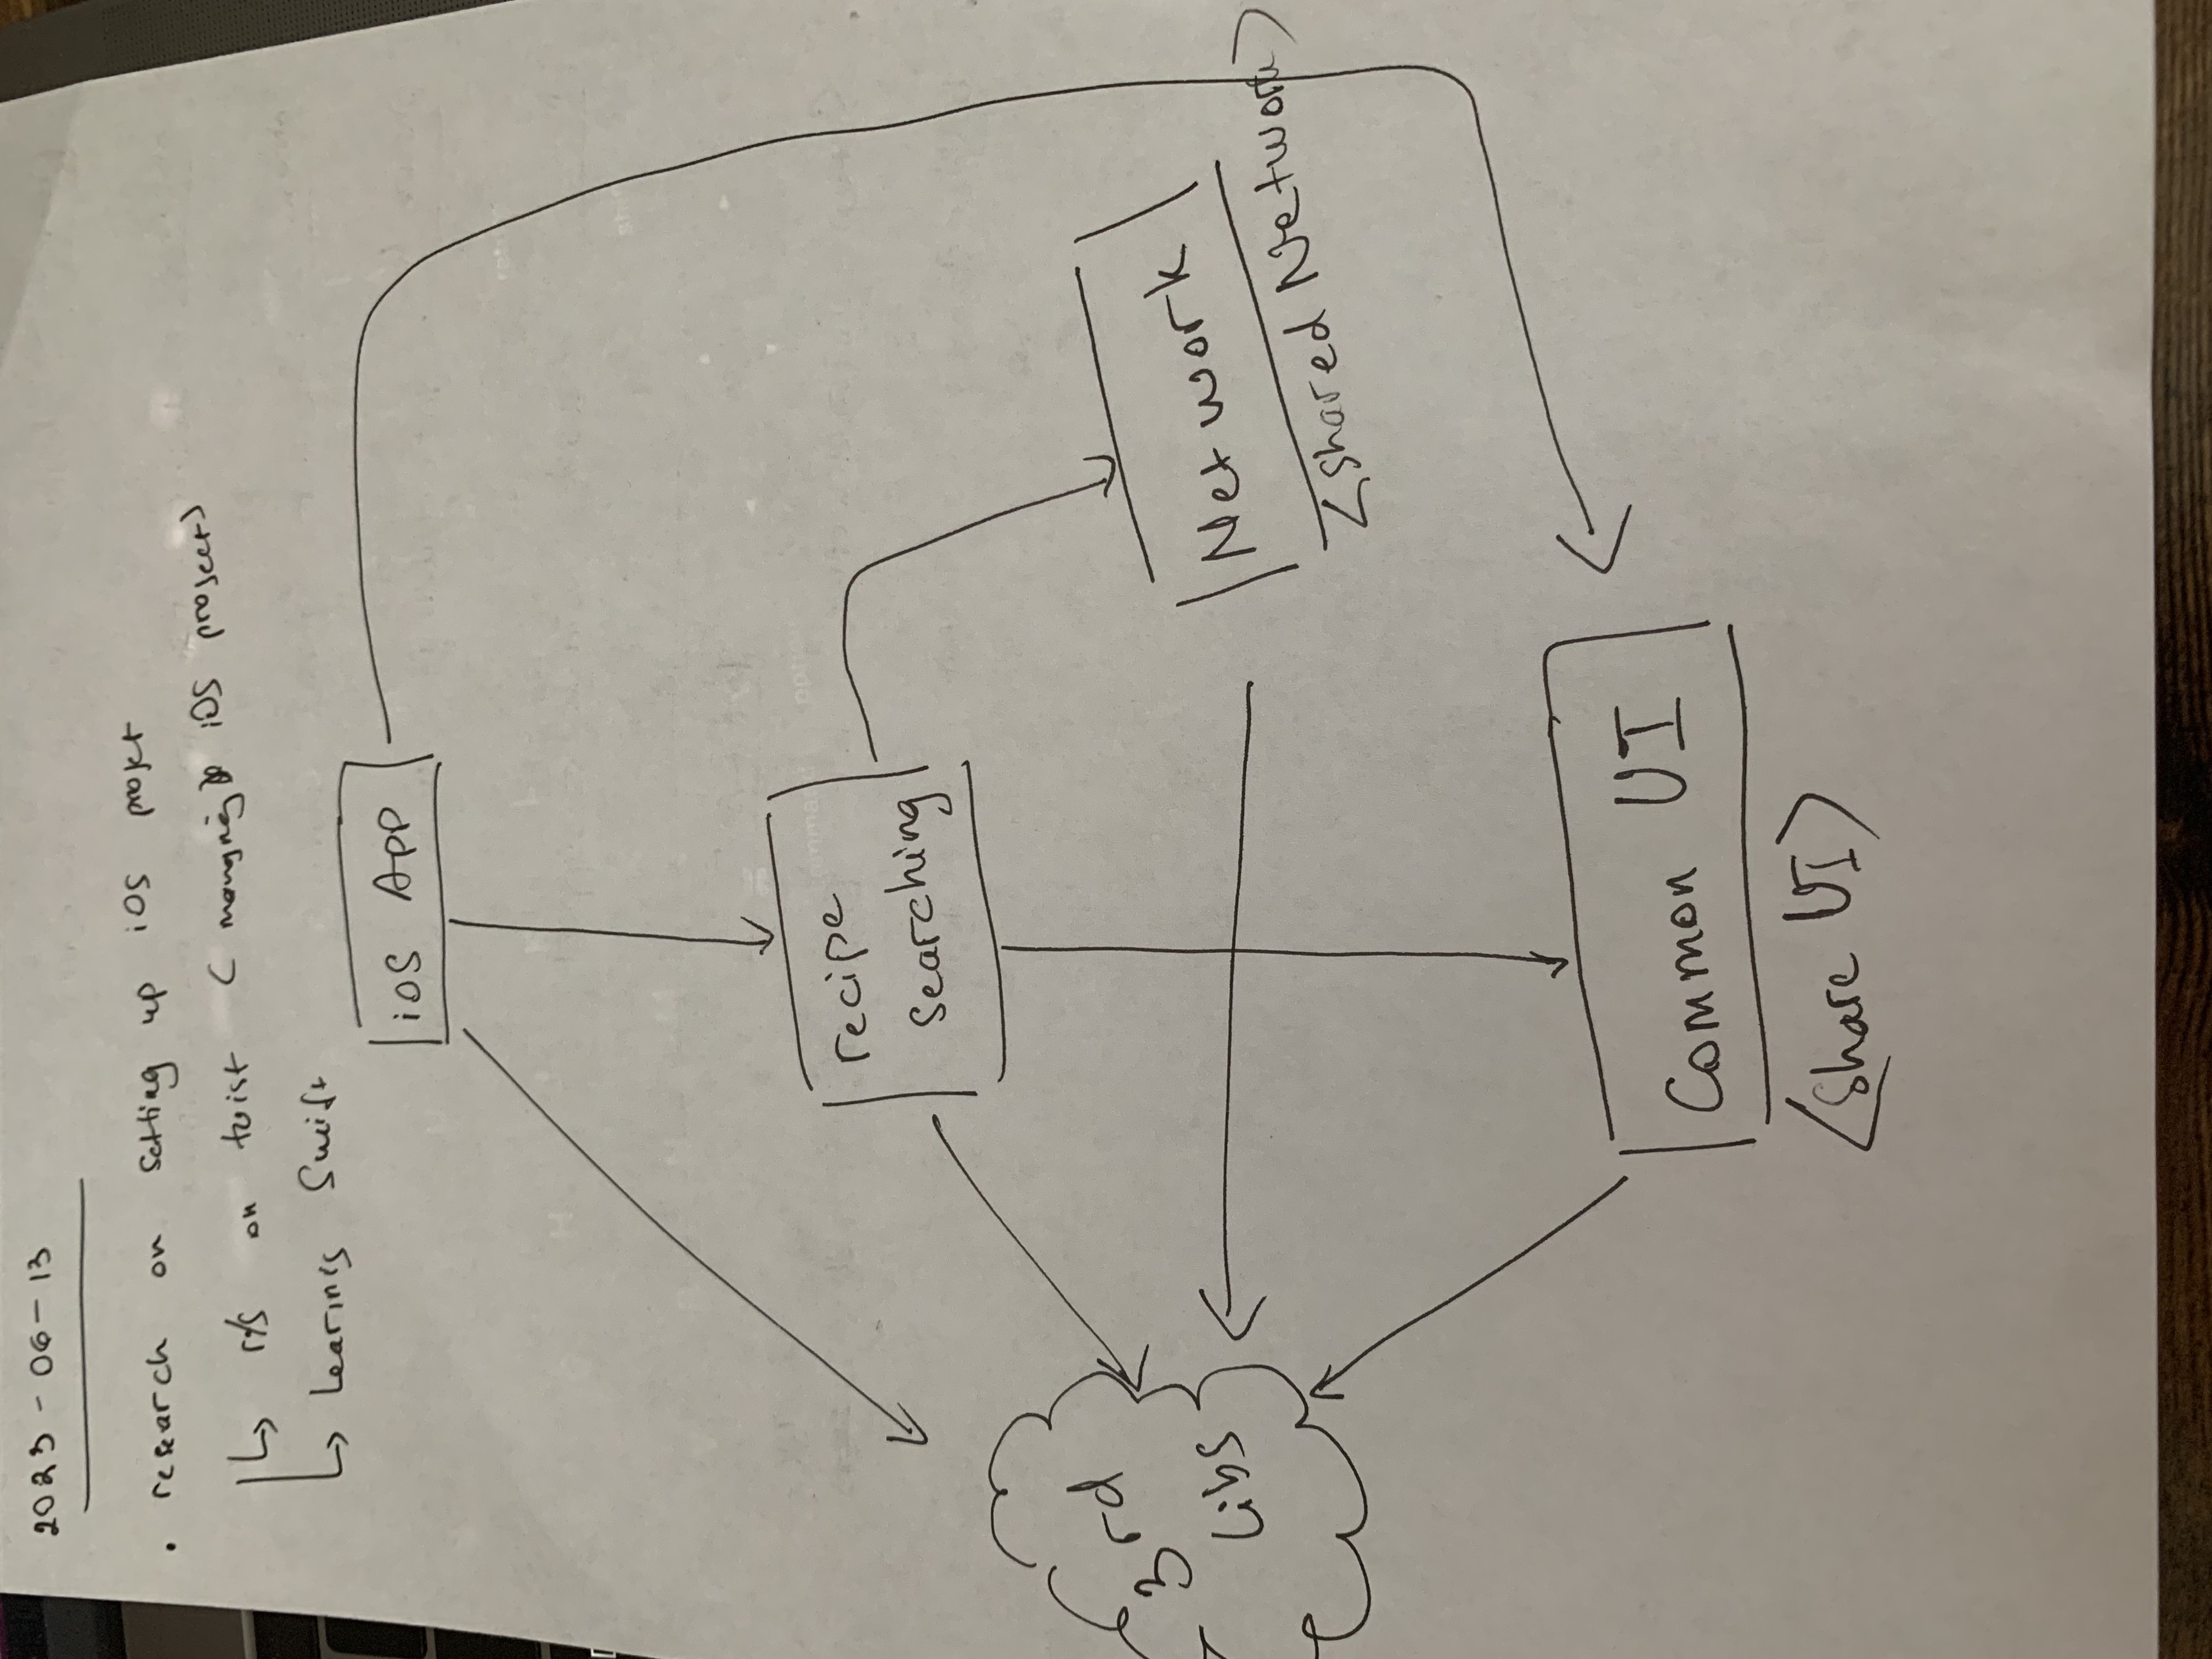 2023-06-13
. research on setting up iOS projet
↳ r/s on tuist ( managing iOS project)
↳ Learinig Swift
iOS App
recipe
searching
3rd
Libs
Network
<shared Network>
Common UI
<Share UI>